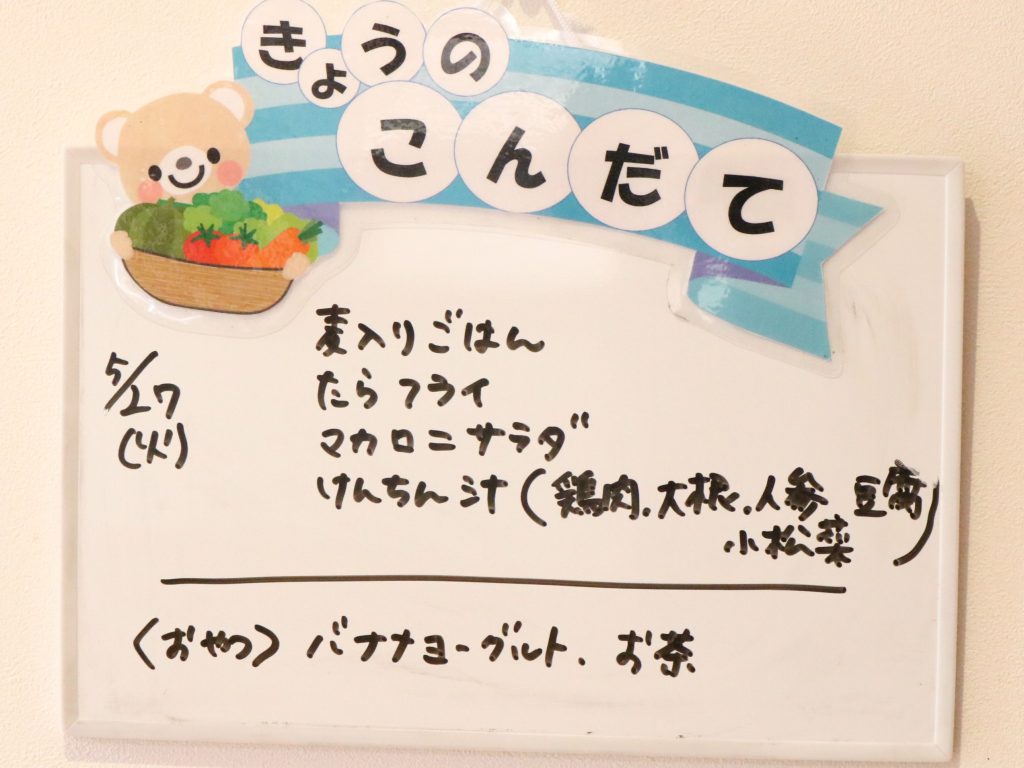 きょうの
こんだて
5/27
(火)
麦入りごはん
たらフライ
マカロニサラダ
けんちん汁(鶏肉.大根.人参 豆腐
小松菜)
〈おやつ〉バナナヨーグルト、お茶